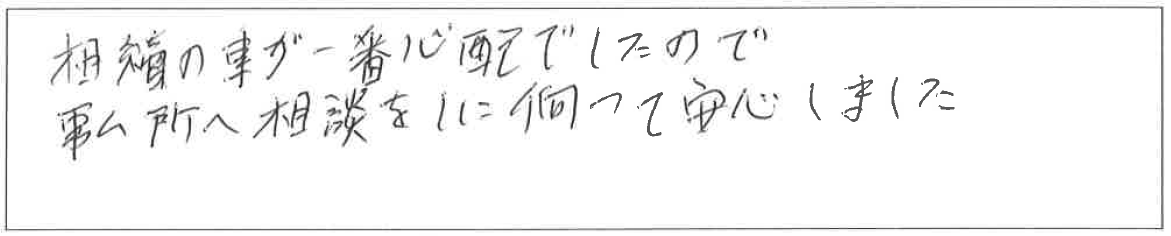 相続の事が一番心配でしたので
事ム所へ相談をしに伺つて安心しました